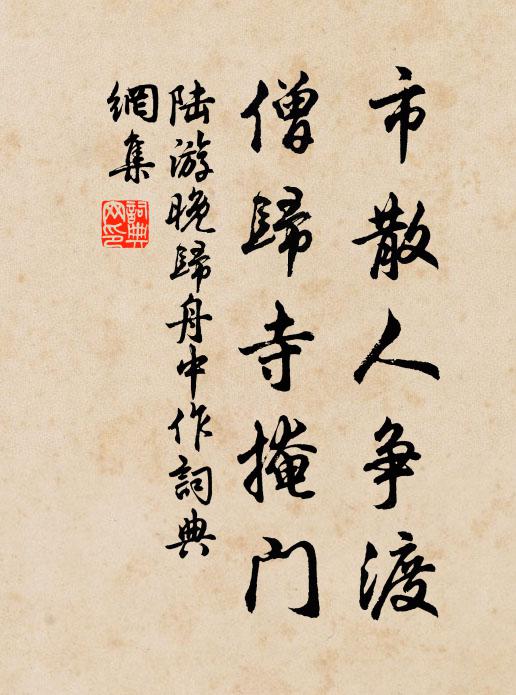 市散人争渡
僧歸寺掩门
陆游晚歸舟中作詞典
網集
詞典
网印